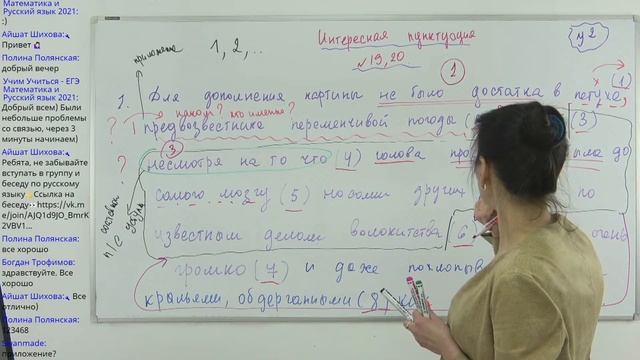 Математика и
Русский язык 2021:
:)
Айшат Шихова:
Привет
Полина Полянская:
добрый вечер
Умим Учиться - ЕГЭ
Математика и
Русский язык 2021:
Добрый всем) Были
небольше проблемы
со связью, через 3
минуты начинаем)
Айшат Шихова:
Ребята, не забывайте
вступать в группу и
беседу по русскому
языку Ссылка на
беседу https://vk.m
e/join/AJQ1d9JO_BmrK
2VBV1...
Полина Полянская:
все хорошо
Богдан Трофимов:
здравствуйте. Все
хорошо
Айшат Шихова: Все
отлично)
Полина Полянская:
123468
приложение?
приложение
1, 2, ...
Интересная пунктуация
№19,20
у2
1
1. Для дополнения картины не было достатка в петухе, (1)
какой? кто именно?
предвозвестнике переменчивой погоды (3)
3
несмотря на то что (4) голова до
самого мозгу (5) носами других по
известным делам волокитства 6
громко (7) и даже
крыльями, обдерганными (8)
составн.
п/с
? ? ?